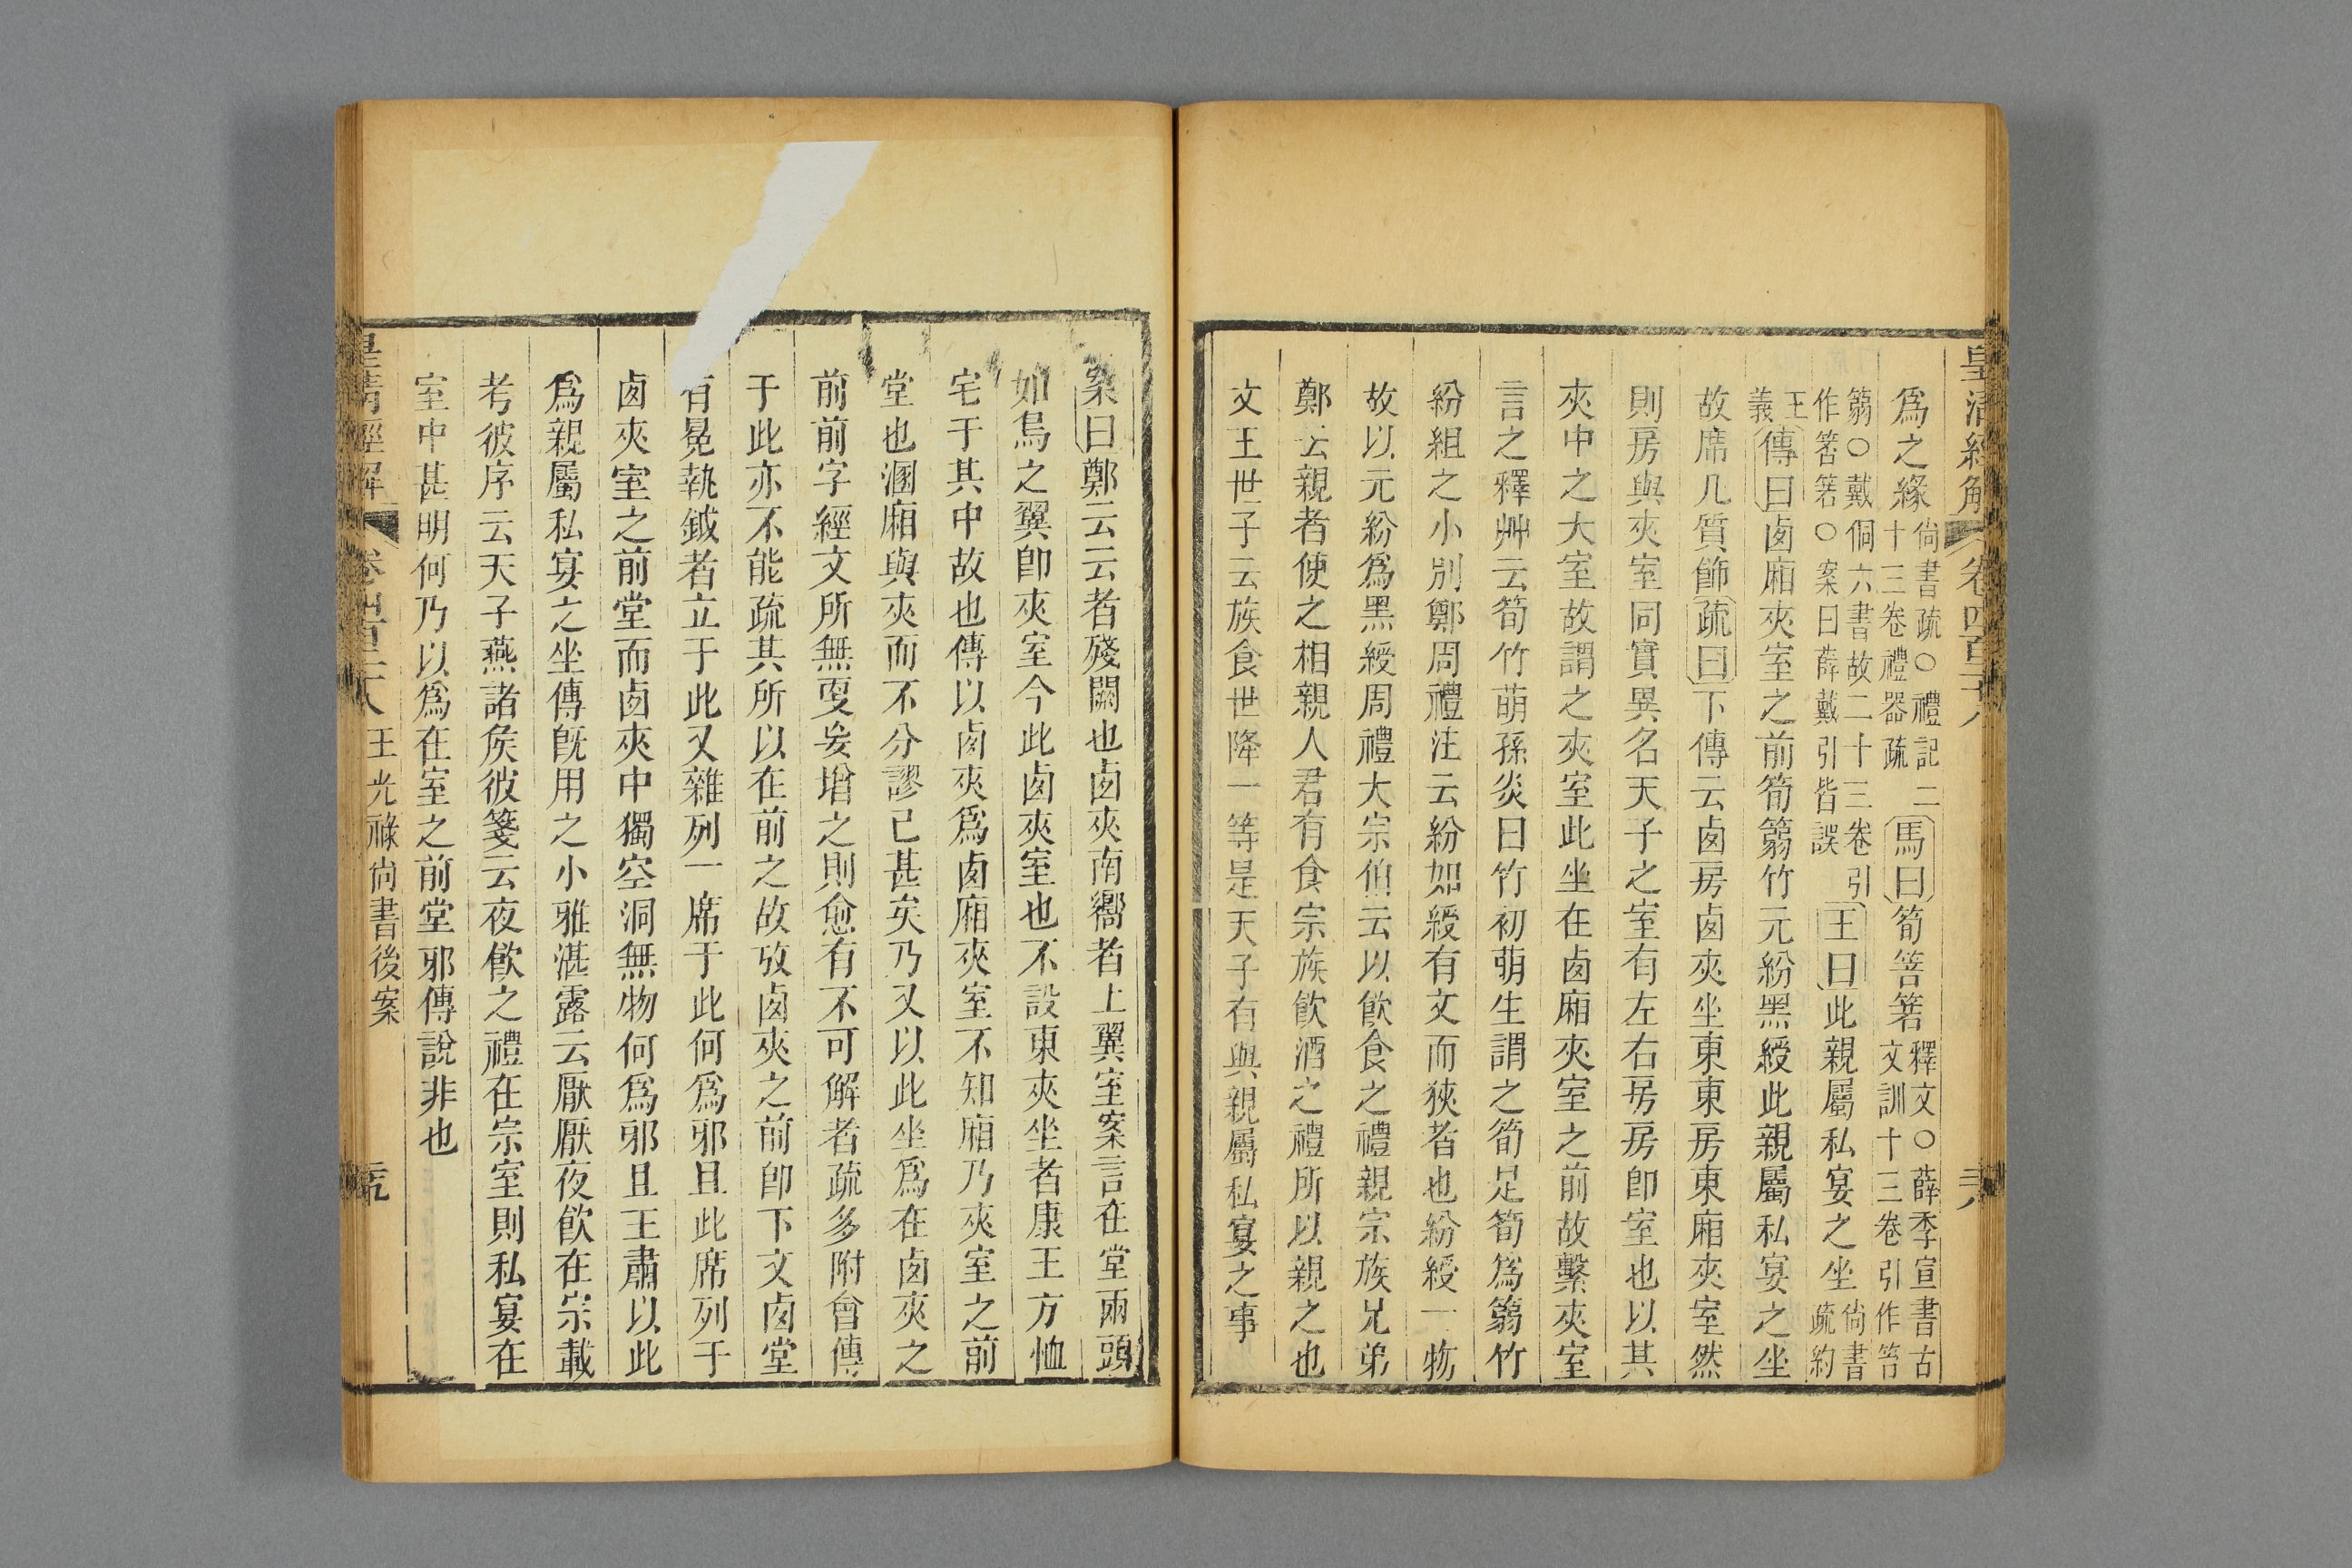 皇清經解 卷四百二十八 二八
爲之緣尙書疏○禮記二十三卷禮器疏馬曰筍箁箬釋文○薛季宣書古文訓十三卷引作笤
篛○戴侗六書故二十三卷引作箬箬○案曰薛戴引皆誤王曰此親屬私宴之坐尙書疏約
王義傳曰卥廂夾室之前筍篛竹元紛黑綬此親屬私宴之坐
故席几質飾疏曰下傳云卥房卥夾坐東東房東廂夾室然
則房與夾室同實異名天子之室有左右房房卽室也以其
夾中之大室故謂之夾室此坐在卥廂夾室之前故繫夾室
言之釋艸云筍竹萌孫炎曰竹初萌生謂之筍是筍爲篛竹
紛組之小別鄭周禮注云紛如綬有文而狹者也紛綬一物
故以元紛爲黑綬周禮大宗伯云以飮食之禮親宗族兄弟
鄭云親者使之相親人君有食宗族飮酒之禮所以親之也
文王世子云族食世降一等是天子有與親屬私宴之事
案曰鄭云云者殘闕也卥夾南嚮者上翼室案言在堂兩頭
如鳥之翼卽夾室今此卥夾室也不設東夾坐者康王方恤
宅于其中故也傳以卥夾爲卥廂夾室不知廂乃夾室之前
堂也溷廂與夾而不分謬已甚矣乃又以此坐爲在卥夾之
前前字經文所無耎妄增之則愈有不可解者疏多附曾傳
于此亦不能疏其所以在前之故攷卥夾之前卽下文卥堂
有冕執鉞者立于此又雜列一席于此何爲邪且此席列于
卥夾室之前堂而卥夾中獨空洞無物何爲邪且王肅以此
爲親屬私宴之坐傳旣用之小雅湛露云厭厭夜飮在宗載
考彼序云天子燕諸矦彼箋云夜飮之禮在宗室則私宴在
室中甚明何乃以爲在室之前堂邪傳說非也
皇淸經解 卷四百二十八 王光祿尙書後案 元